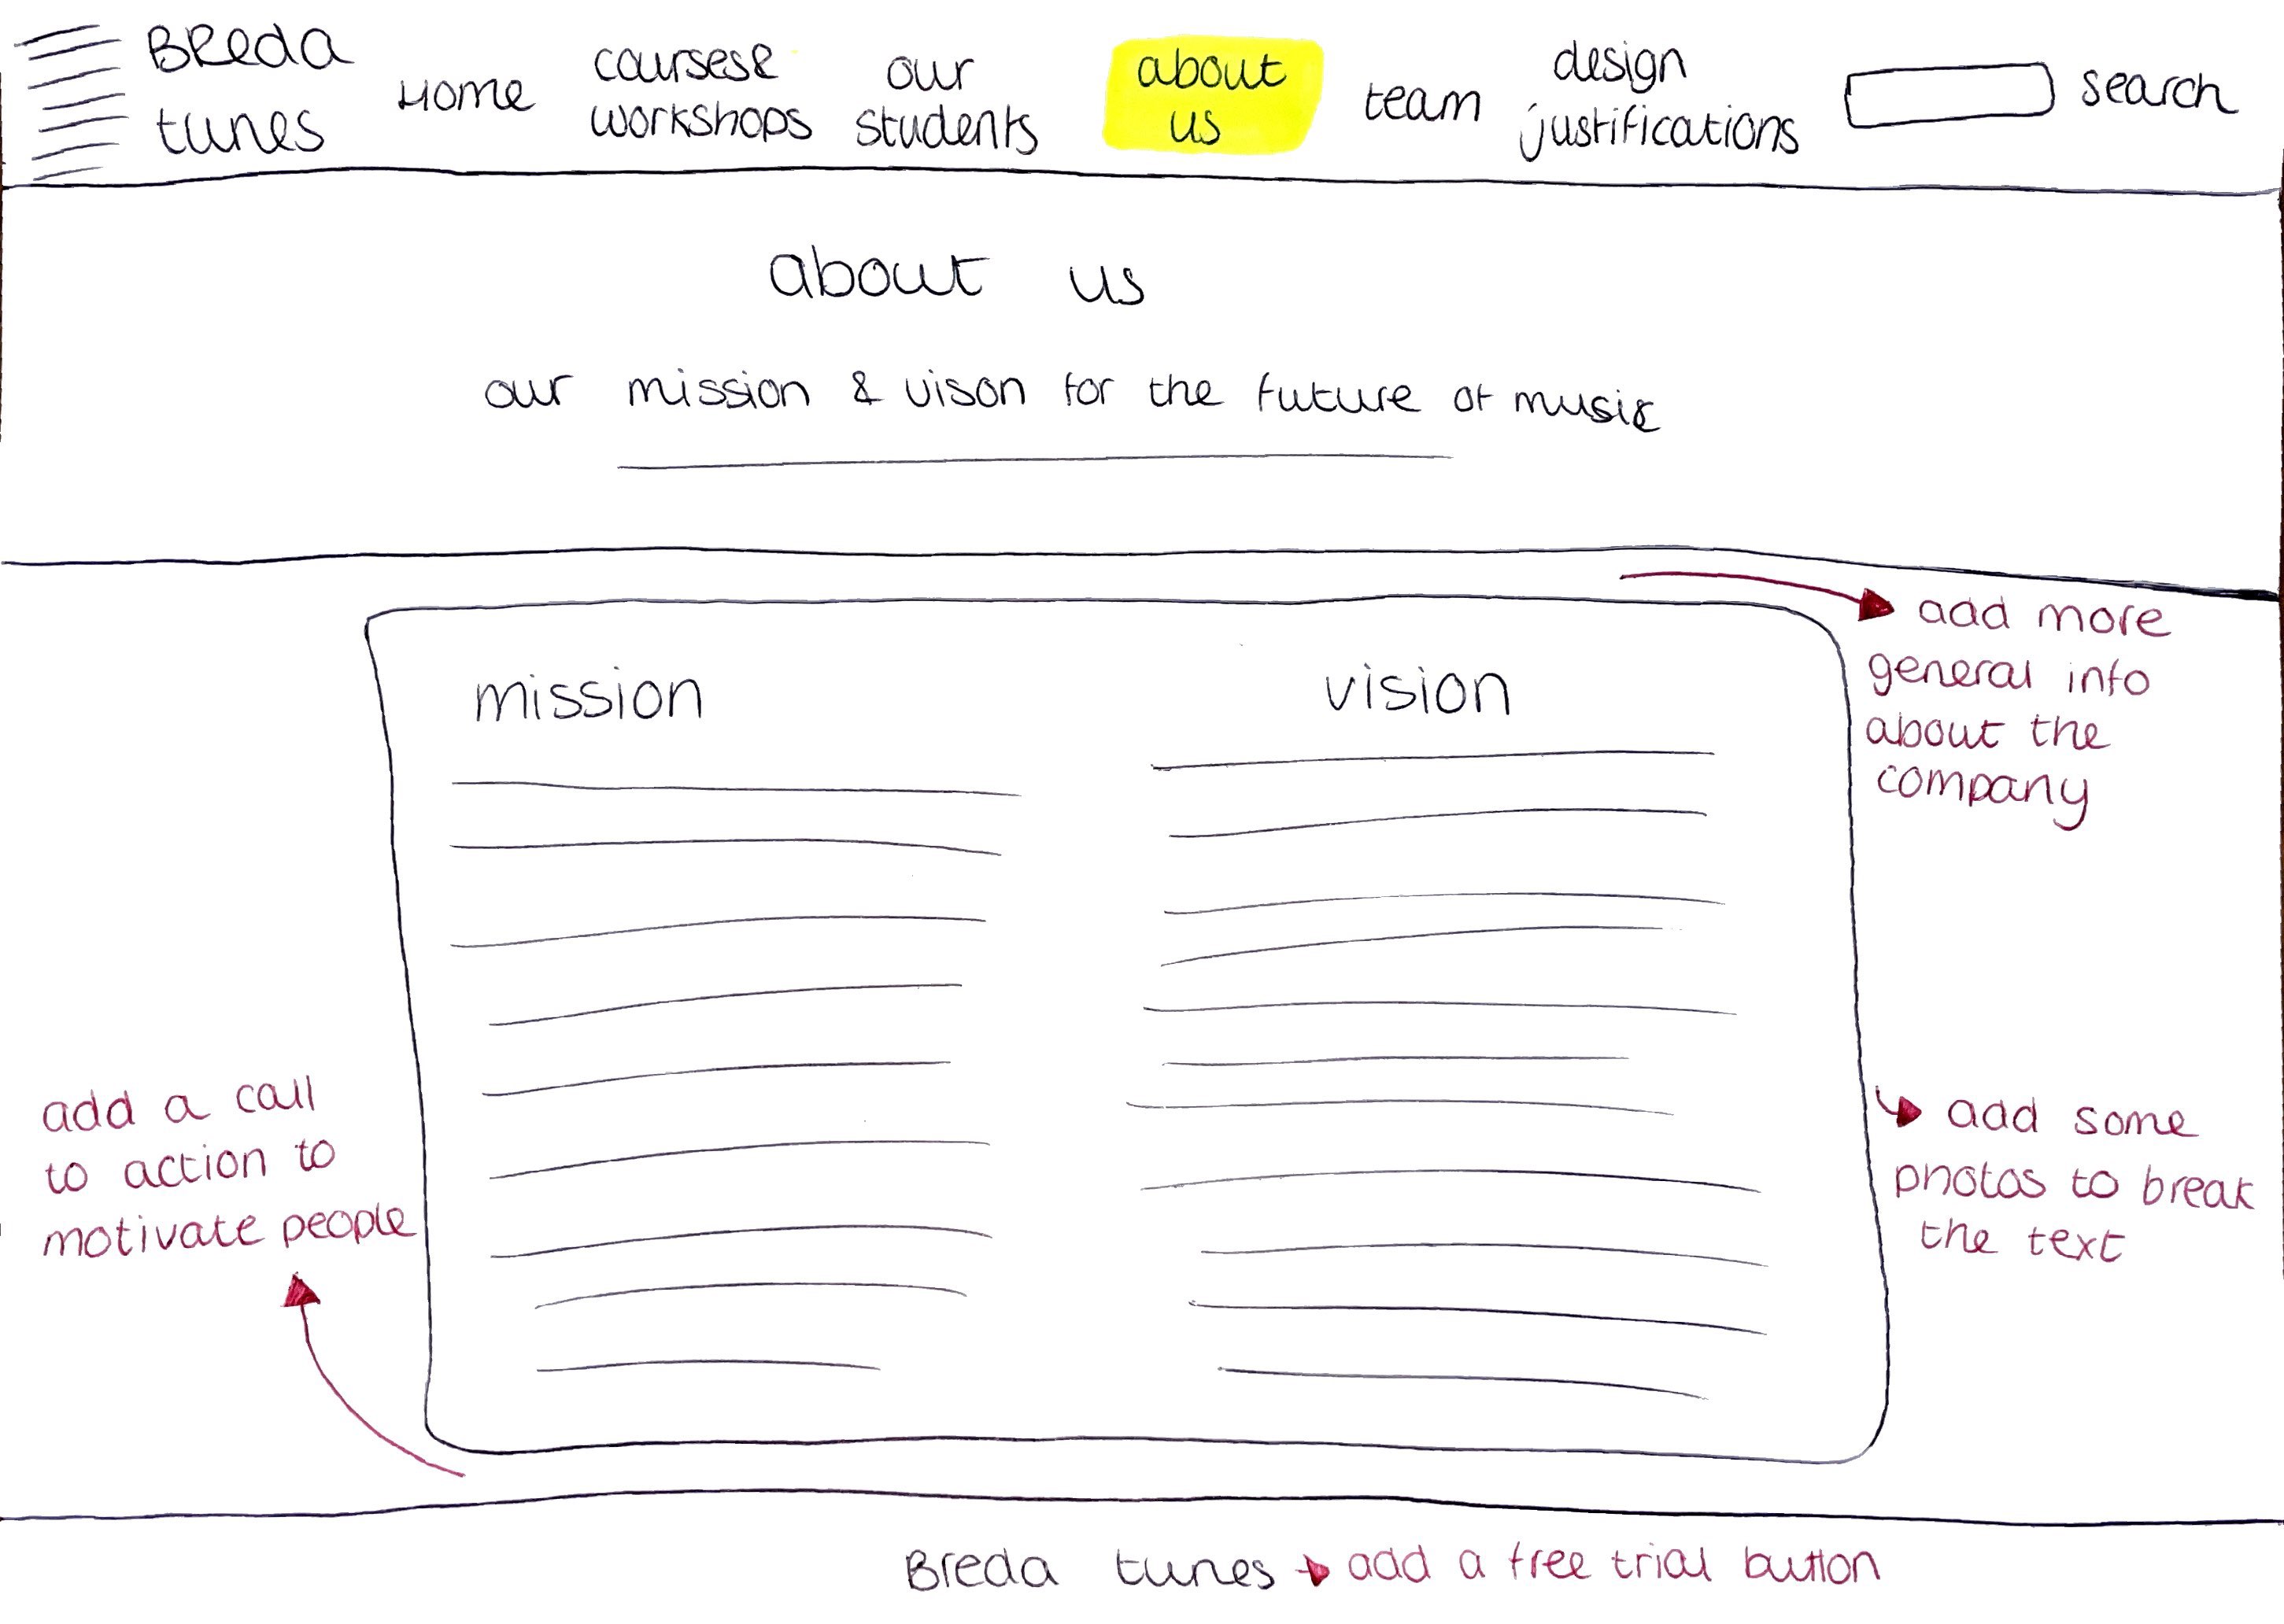 Breda
tunes
Home
courses&
workshops
our
students
about
us
team
design
justifications
search
about us
our mission & vison for the future of music
mission
vision
add more
general info
about the
company
add a call
to action to
motivate people
add some
photos to break
the text
Breda tunes
add a free trial button